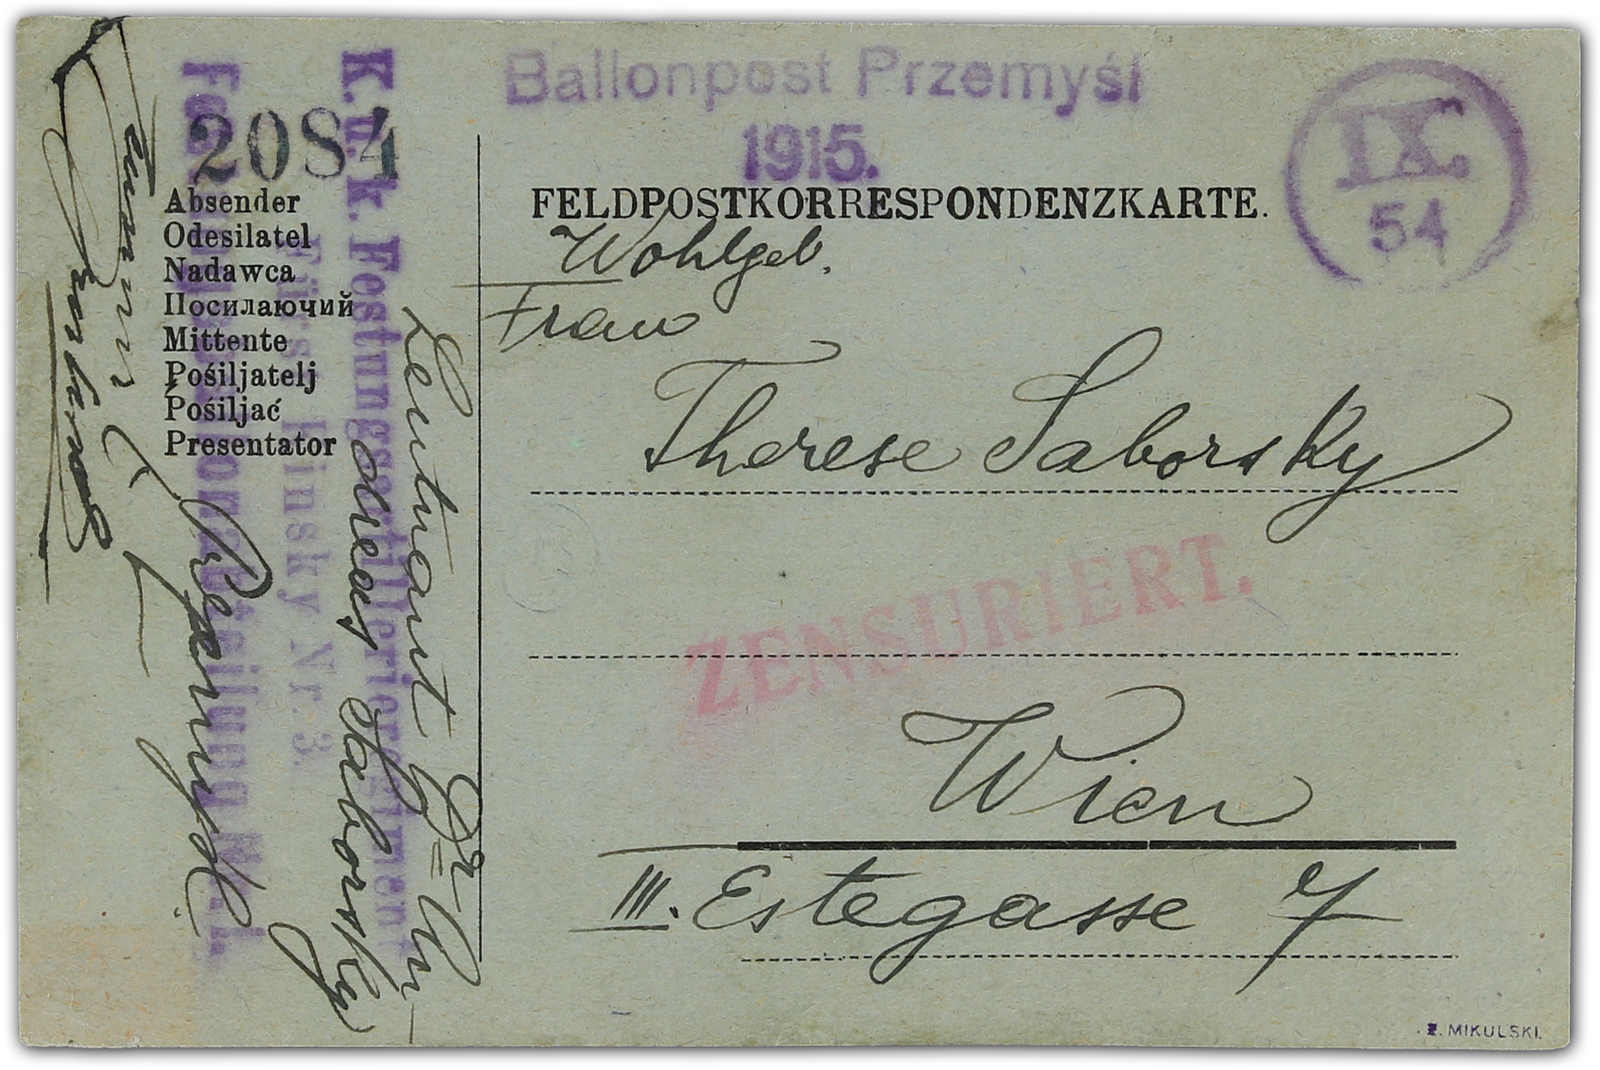 Ballonpost Przemyśl
1915.
IX.
54
2084
FELDPOSTKORRESPONDENZKARTE.
Absender
Odesilatel
Nadawca
Посилаючий
Mittente
Pośiljatelj
Pośiljać
Presentator
K. u. k. Festungsartillerieregiment
Fürst Kinsky Nr. 3.
Leutnant Dr
Saborsky
Przemysl
Wohlgeb.
Frau
Therese Saborsky
ZENSURIERT.
Wien
III. Estegasse 7
Z. MIKULSKI.